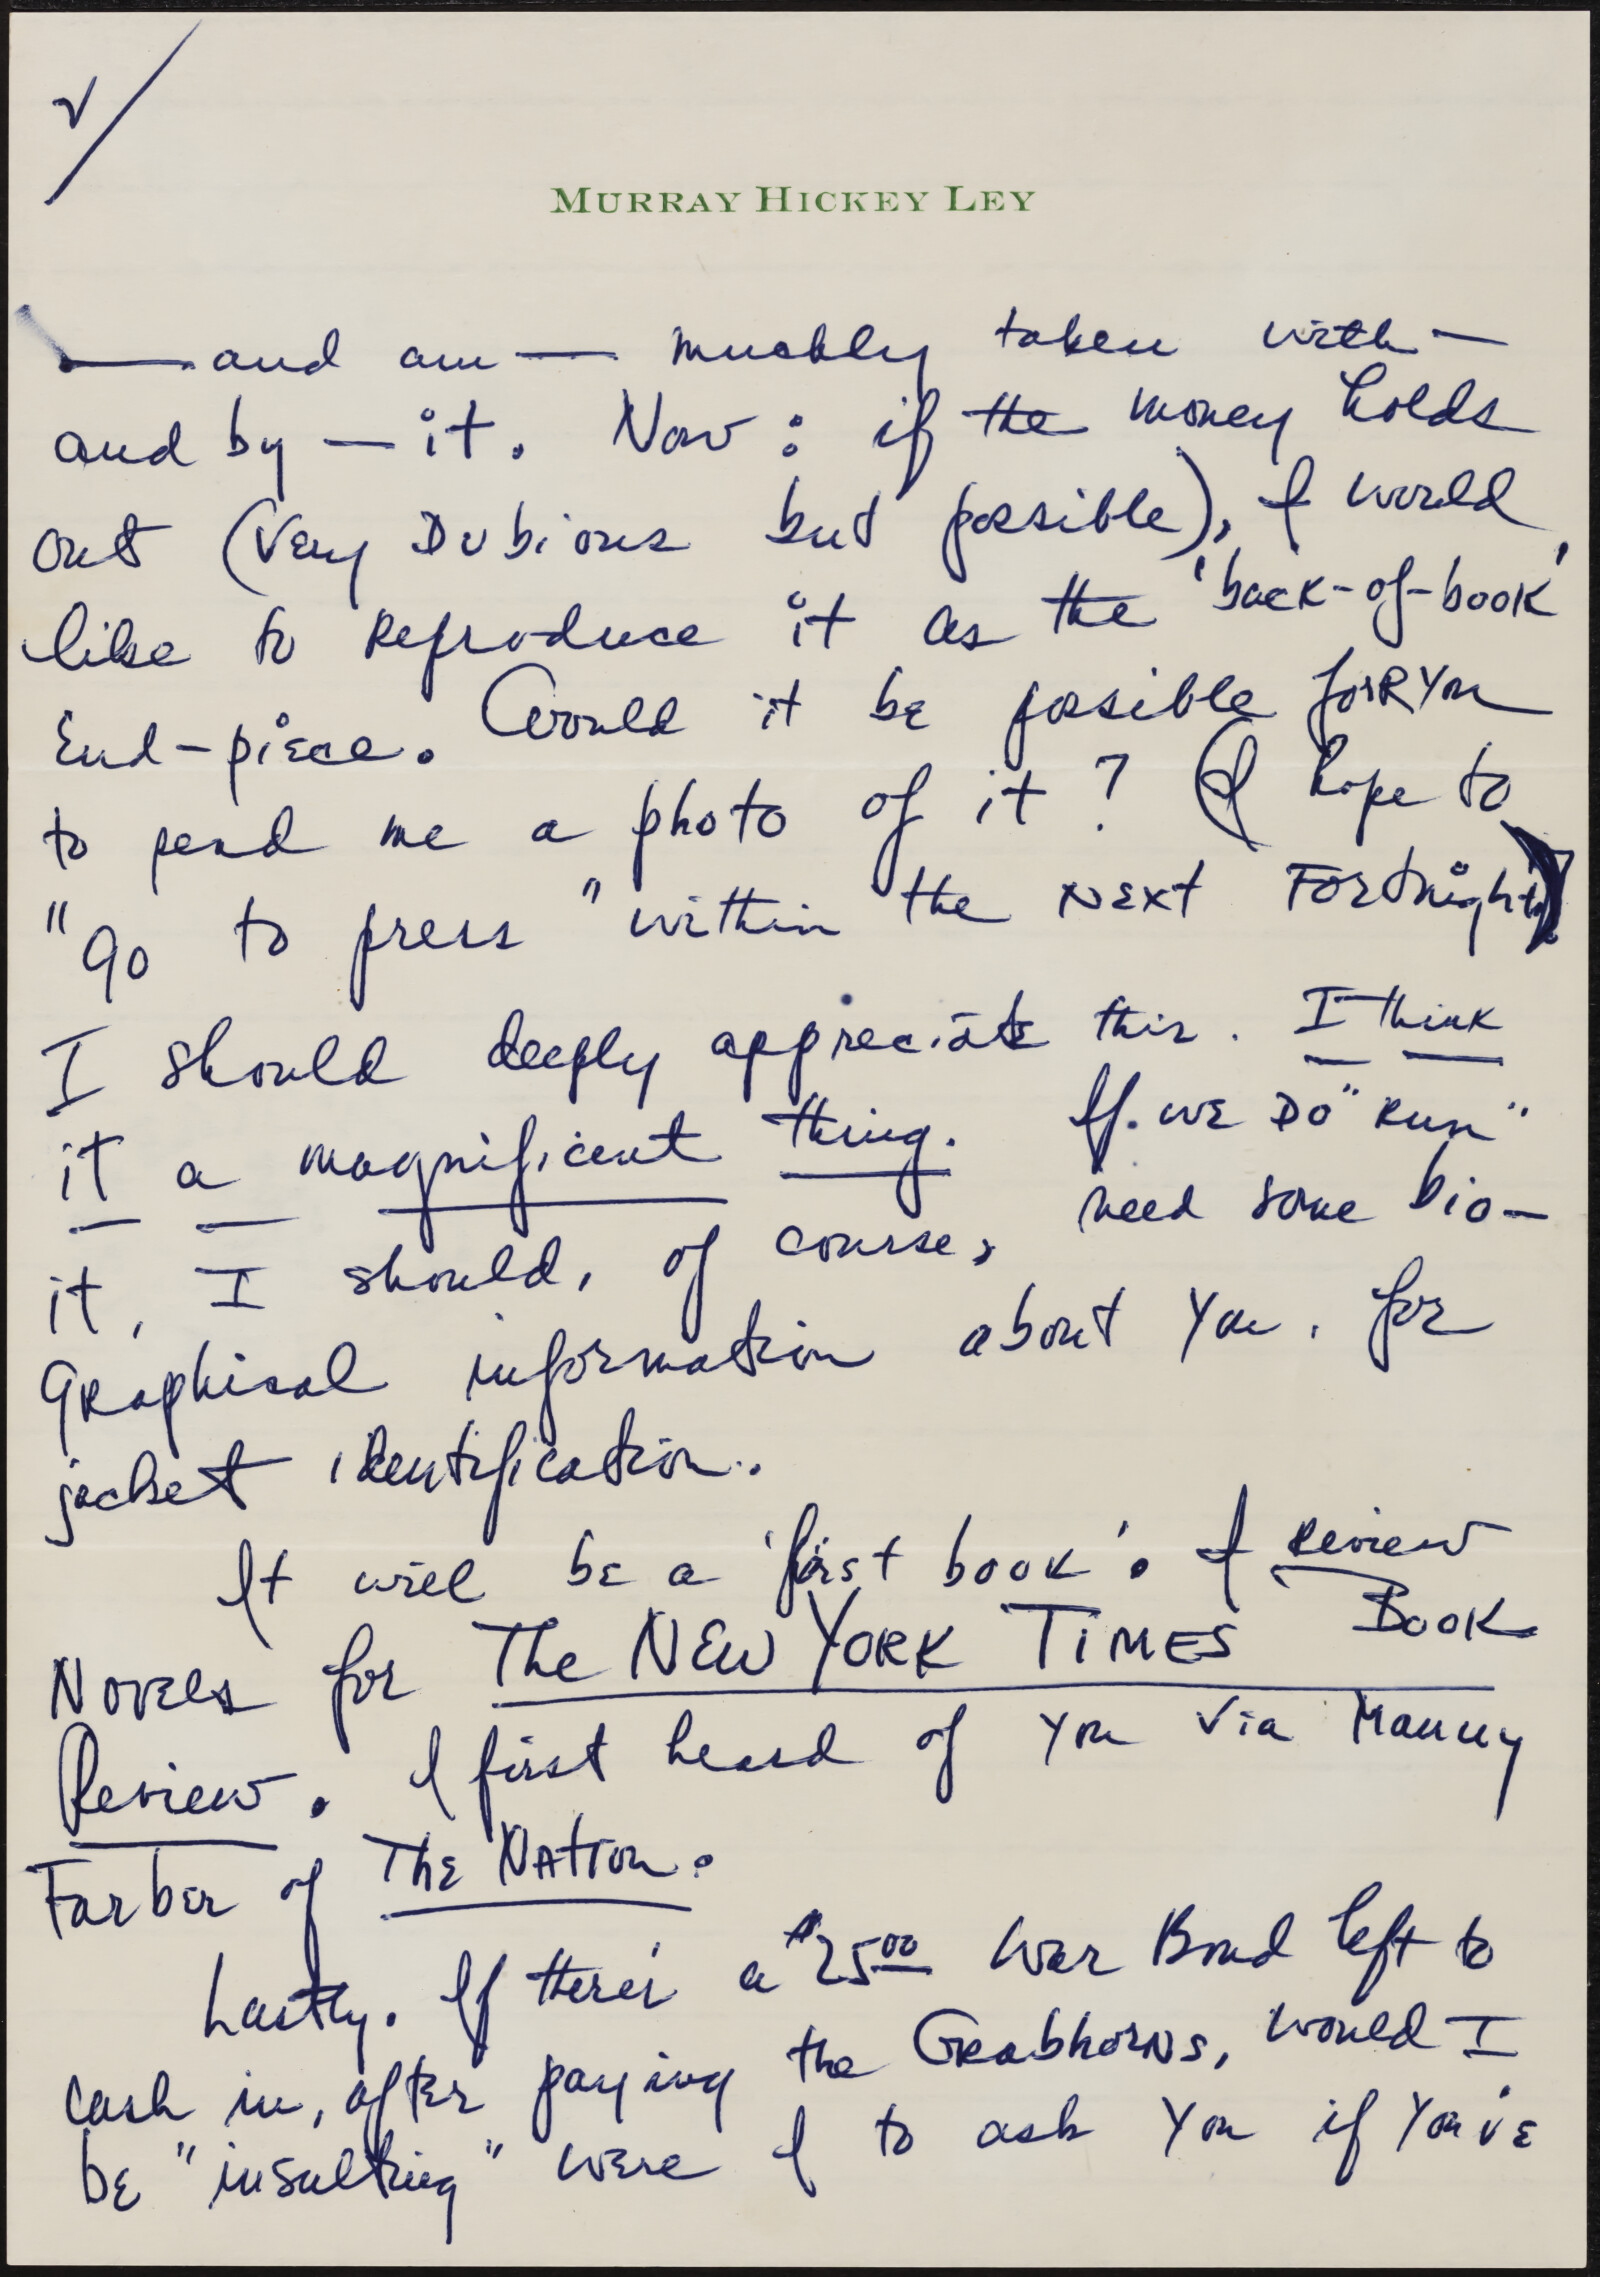 2/
MURRAY HICKEY LEY
— and am — muchly taken with —
and by — it. Now: if the money holds
out (very Dubious but possible), I would
like to Reproduce it as the 'back-of-book'
End-piece. Would it be possible foR You
to send me a photo of it? (I hope to
"go to press" within the NExt Fortnight)
I should deeply appreciate this. I think
it a magnificent thing. If WE DO "Run"
it, I should, of course, need some bio-
GRaphical information about You, for
jacket identification.
It will be a 'first book'. I Review
NovELs for The NEW YORK TiMES Book
Review. I first heard of You via Manny
Farber of ThE NAtion.
Lastly. If there's a $25.00 War Bond left to
cash in, after paying the GRabhorns, would I
be "insulting" were I to ask You if You'vE